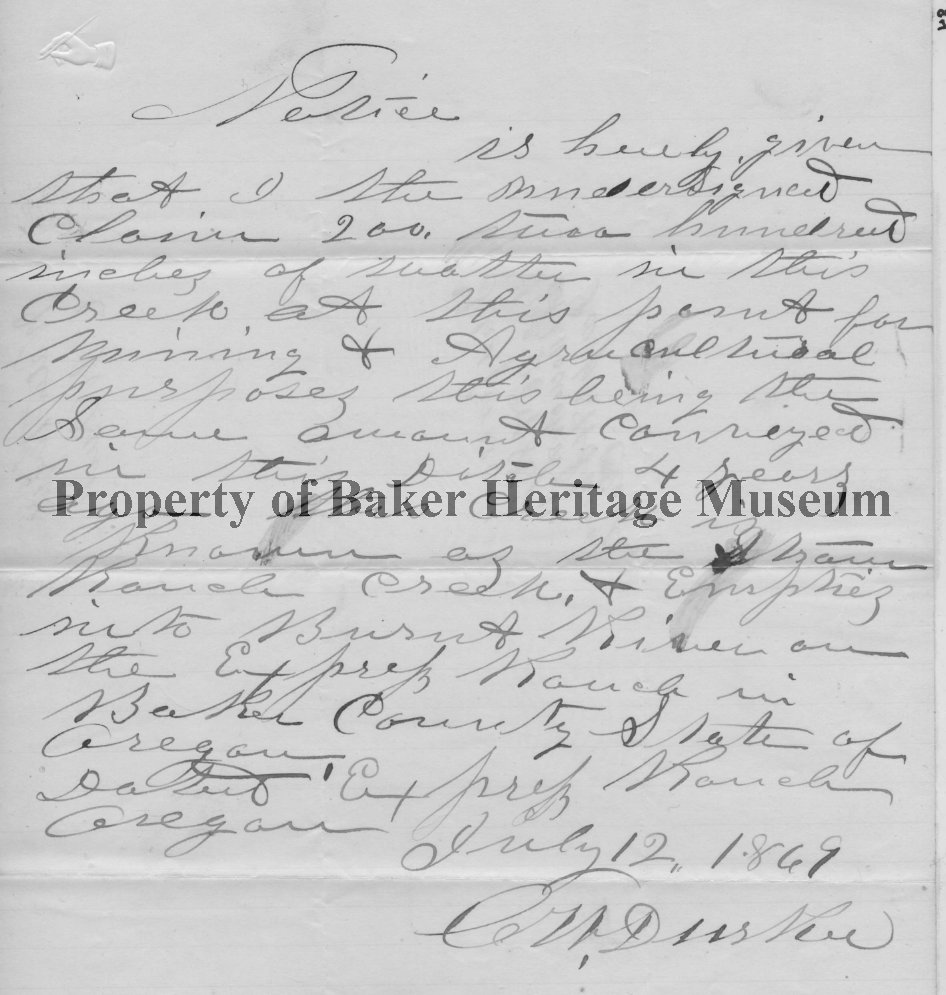 Notice
is hereby given
that I the undersigned
Claim 200. two hundred
inches of watter in this
Creek at this point for
Mining & Agruicultural
purposes this being the
Same amount Conveyed
in this Ditch 4 years
ago this Creek is
Known as the Straw
Ranch Creek, & Empties
into Burnt River on
the Express Ranch in
Baker County State of
Oregon
Dated Express Ranch
Oregon
July 12, 1869
C. W. Durkee
Property of Baker Heritage Museum